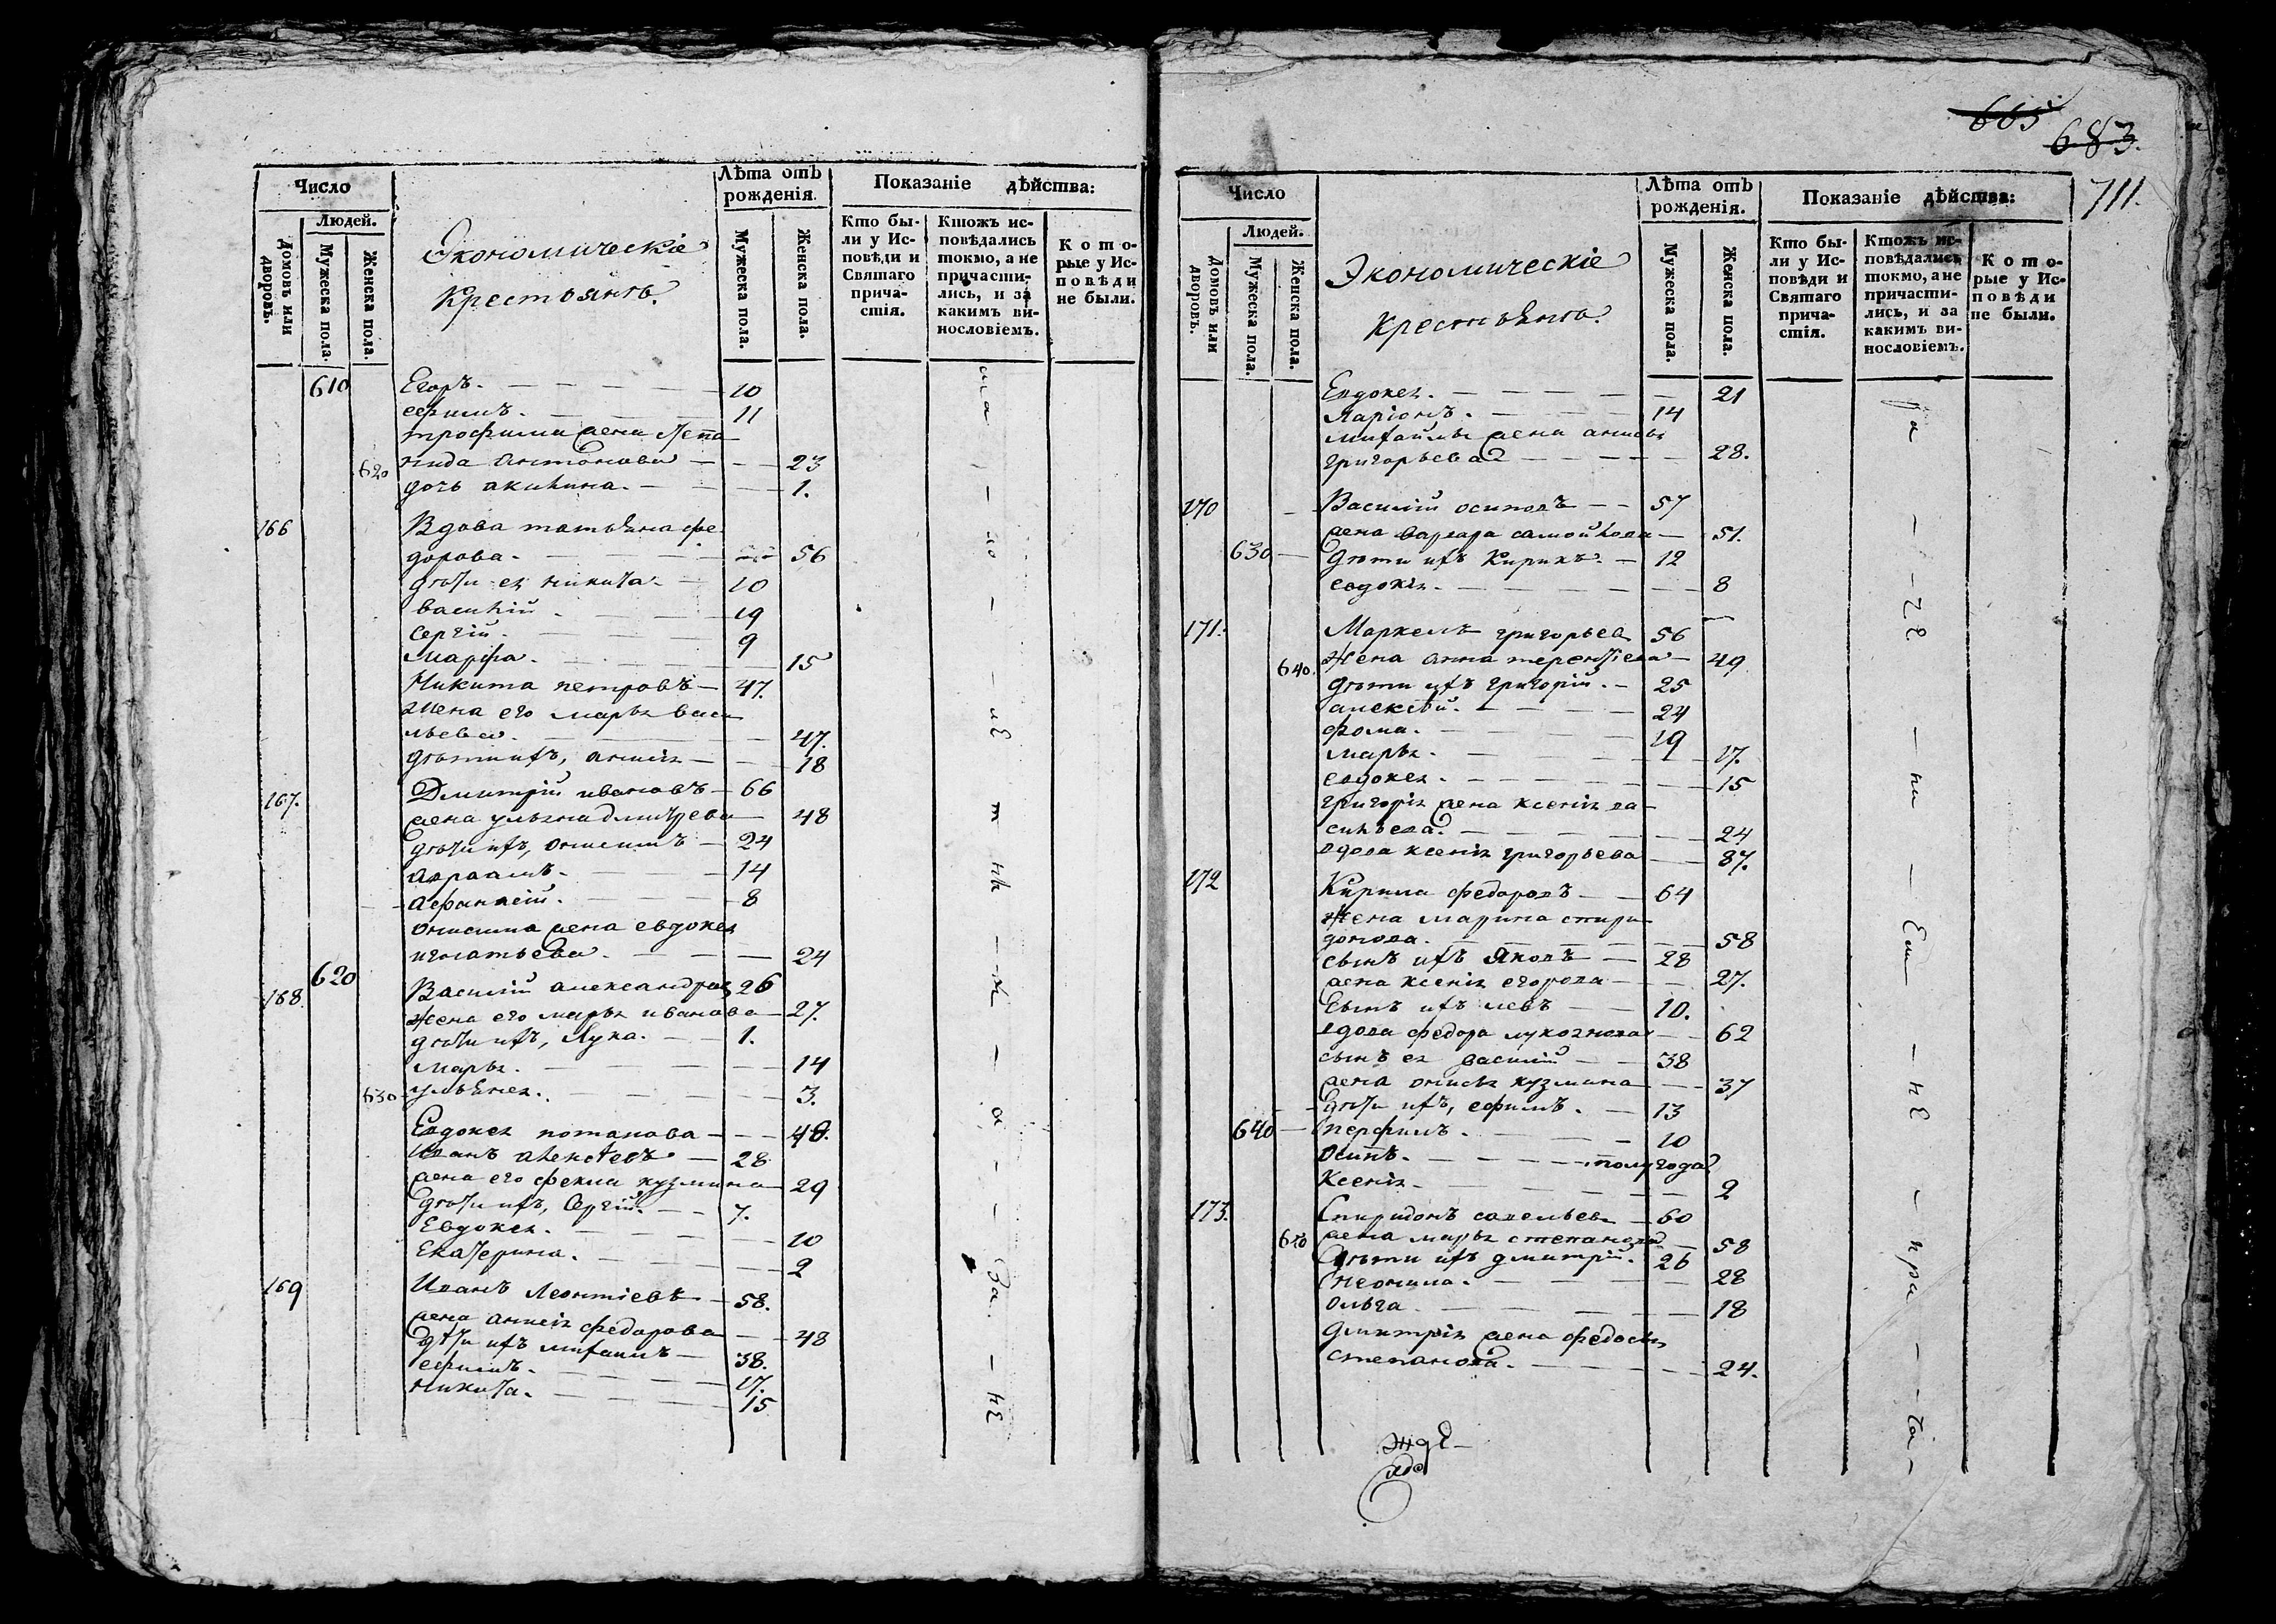 Число
Людей.
Домовъ или дворовъ.
Мужеска пола.
Женска пола.
Экономическіе
Крестьяне.
Лѣта отъ рожденія.
Мужеска пола.
Женска пола.
Показаніе дѣйства:
Кто бы-
ли у Ис-
повѣди и
Святаго
прича-
стія.
Ктожъ ис-
повѣдались
токмо, а не
причасти-
лись, и за
какимъ ви-
нословіемъ.
Кото-
рые у Ис-
повѣди
не были.
610 Егоръ. 10
ефимъ. 11
трофима жена Степа
нида антонова 23
620 дочь акилина. 1.
166 Вдова татьяна фе
дорова. 56
дѣти ея никита 10
василій 19
Сергій 9
Марфа. 15
Никита петровъ 47.
Жена его марья васи
льева 47.
дѣти ихъ, анисія 18
167. Дмитрій ивановъ 66
жена ульяна дмитрева 48
дѣти ихъ, онисимъ 24
авраамъ. 14
афанасій. 8
онисима жена евдокея
игнатьева. 24
620
168. Василій александровъ 26
Жена его марья иванова 27.
дѣти ихъ, Лука. 1.
Марья. 14
630 ульяния. 3.
Евдокея потапова 48.
Иванъ алексѣевъ 28
жена его фекла кузмина 29
дѣти ихъ, Сергій. 7.
Евдокея. 10
Екатерина. 2
169 Иванъ Леонтіевъ 58.
жена анисія федорова 48
дѣти ихъ михаилъ 38.
ефимъ. 17.
никита. 15
665
683.
711.
Число
Людей.
Домовъ или дворовъ.
Мужеска пола.
Женска пола.
Экономическіе
Крестьяне.
Лѣта отъ рожденія.
Мужеска пола.
Женска пола.
Показаніе дѣйства:
Кто бы-
ли у Ис-
повѣди и
Святаго
прича-
стія.
Ктожъ ис-
повѣдались
токмо, а не
причасти-
лись, и за
какимъ ви-
нословіемъ.
Кото-
рые у Ис-
повѣди
не были.
Евдокея. 21
Ларіонъ. 14
михайлы жена анисья
григорьева 28.
170 Василій осиповъ 57
жена варвара самойлова 51.
630 дѣти ихъ Кирикъ. 12
евдокія. 8
171. Маркелъ григорьев 56
640. Жена анна терентіева 49
дѣти ихъ григорій. 25
алексѣй. 24
фома. 19
марья. 17.
евдокея. 15
григорія жена ксенія ва
сильева. 24
вдова ксенія григорьева 87.
172 Кирила федоровъ 64
Жена марина спири
донова. 58
сынъ ихъ Яковъ 28
жена ксенія егорова 27.
Сынъ ихъ левъ 10.
вдова федора 62
сынъ ея василій 38
жена анисья кузмина 37
дѣти ихъ, ефимъ. 13
640 перфилъ. 10
Осипъ. полугода
Ксенія. 2
173. Спиридонъ савельевъ 60
650 жена марья степанова 58
дѣти ихъ дмитрій. 26
28
Ольга 18
дмитрія жена федосья
степанова. 24.